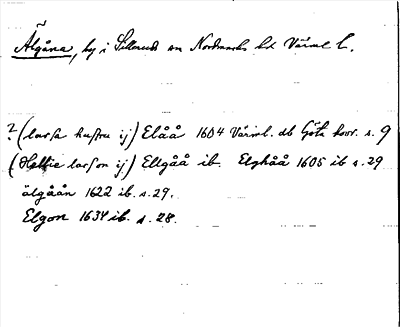 Älgåna, by i Sillerud sn Nordmarks hd Värml l.
? (larsa hustru ij) Elåå 1604 Värml. db Göta kovr. s. 9
(Hellie larson ij) Ellgåå ib. Elghåå 1605 ib s. 29
älgåån 1622 ib. s. 29.
Elgon 1634 ib. s. 28.